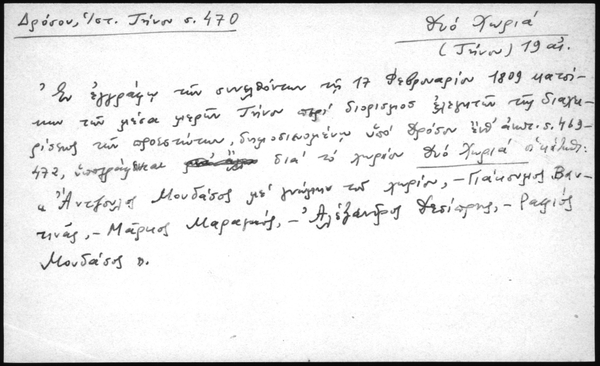 Δρόσου, Ἱστ. Τήνου σ. 470
Δυό Χωριά
(Τήνου) 19 αἰ.
Ἐν ἐγγράφῳ τῶν συνελθόντων τῇ 17 Φεβρουαρίου 1809 κατοί-
κων τῶν μέσα μερῶν Τήνου περί διορισμοῦ ἐλεγκτῶν τῆς διαχει-
ρίσεως τῶν προεστώτων, δημοσιευομένῳ ὑπό Δρόσου ἔνθ' ἀνωτ. σ. 469-
472, ὑπογράφεται διά τό χωρίον Δυό Χωριά
„ Ἀντζουλος Μονδάσος μέ γνώμην τοῦ χωρίου, – Γιάκουμος Βαν-
τινάς, – Μάρκος Μαραγκός, – Ἀλέξανδρος Δεσίπρης, – Ραφιός
Μονδάσος ".